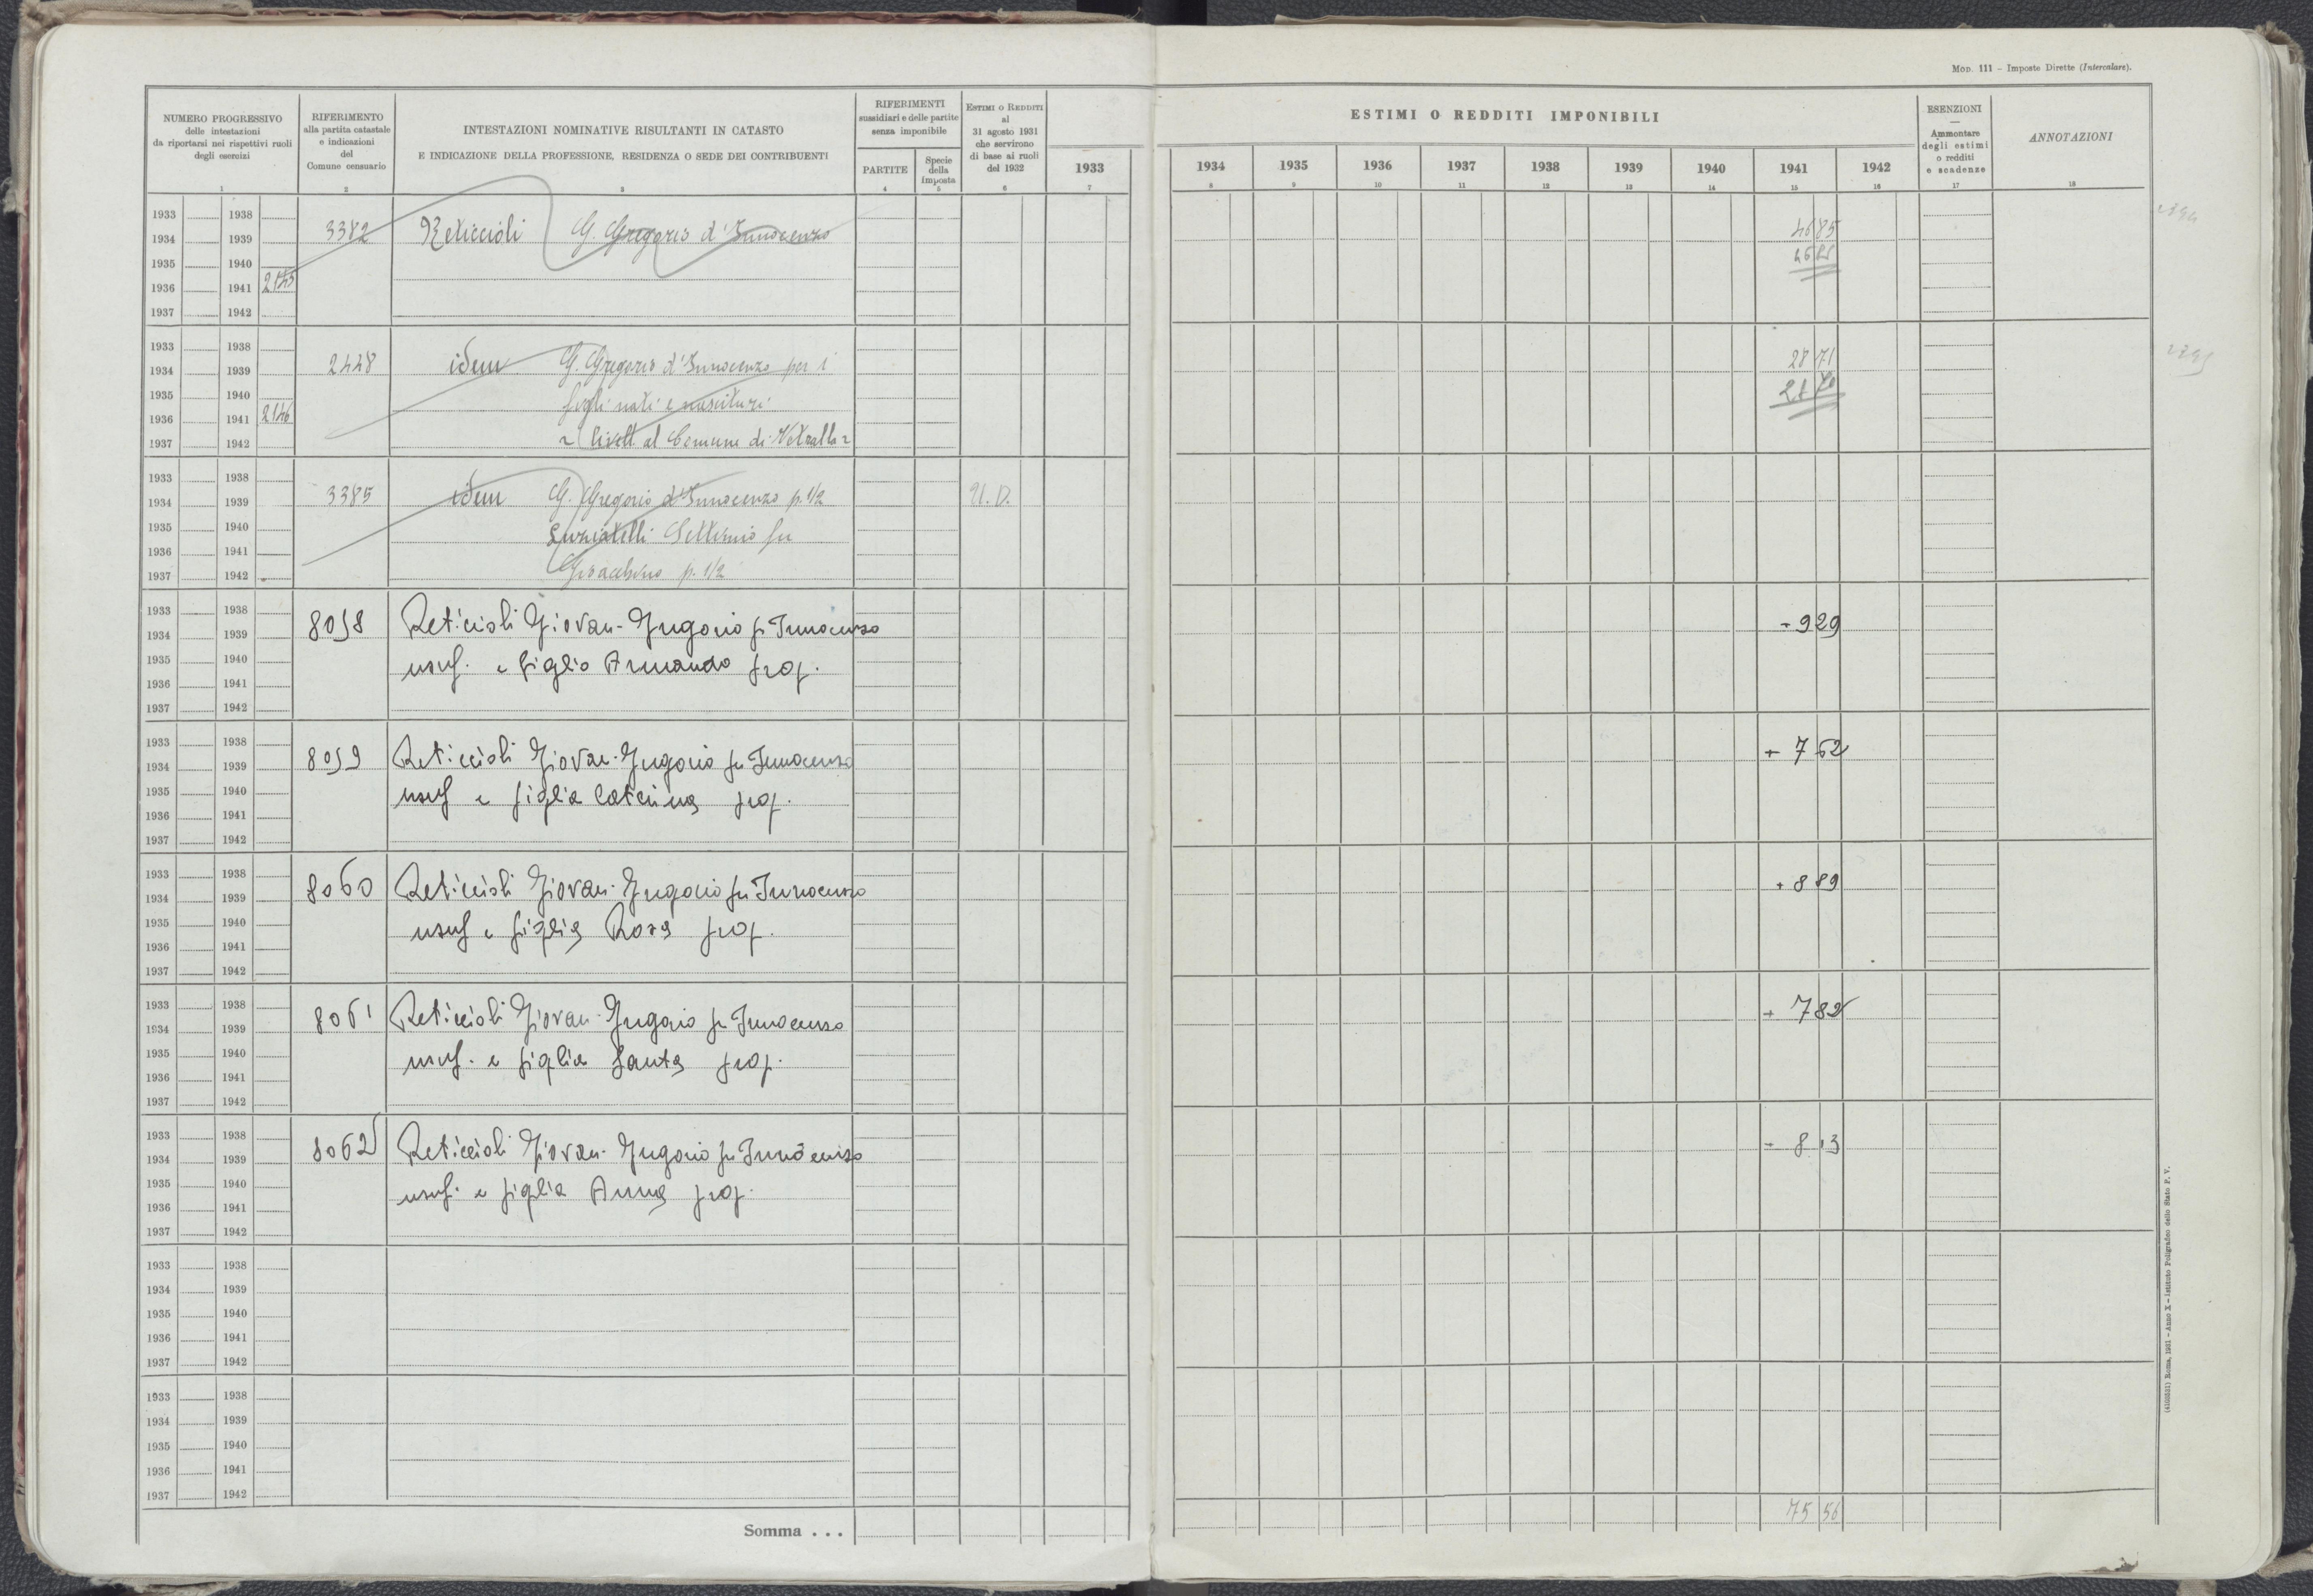 MOD. 111 – Imposte Dirette (Intercalare).
NUMERO PROGRESSIVO
delle intestazioni
da riportarsi nei rispettivi ruoli
degli esercizi
1
RIFERIMENTO
alla partita catastale
e indicazioni
del
Comune censuario
2
INTESTAZIONI NOMINATIVE RISULTANTI IN CATASTO
E INDICAZIONE DELLA PROFESSIONE, RESIDENZA O SEDE DEI CONTRIBUENTI
3
RIFERIMENTI
sussidiari e delle partite
senza imponibile
PARTITE
4
Specie
della
imposta
5
ESTIMI O REDDITI
al
31 agosto 1931
che servirono
di base ai ruoli
del 1932
6
ESTIMI O REDDITI IMPONIBILI
1933 1934 1935 1936 1937 1938 1939 1940 1941 1942
7 8 9 10 11 12 13 14 15 16
ESENZIONI
—
Ammontare
degli estimi
o redditi
e scadenze
17
ANNOTAZIONI
18
1933 1938
1934 1939 3382 Reticcioli G. Gregorio d'Innocenzo 4685
1935 1940
1936 1941 2145
1937 1942
1933 1938
1934 1939 2448 idem G. Gregorio d'Innocenzo per i 2871
1935 1940 figli nati e nascituri
1936 1941 2146
1937 1942 livell. al Comune di Vetralla
1933 1938
1934 1939 3385 idem G. Gregorio d'Innocenzo p. 1/2 U.D.
1935 1940 Settimio fu
1936 1941
1937 1942 Gioacchino p. 1/2
1933 1938
1934 1939 8058 Reticcioli Giovan-Gregorio fu Innocenzo + 929
1935 1940 usuf. e figlio Armando prop.
1936 1941
1937 1942
1933 1938
1934 1939 8059 Reticcioli Giovan-Gregorio fu Innocenzo + 762
1935 1940 usuf e figlia Caterina prop.
1936 1941
1937 1942
1933 1938
1934 1939 8060 Reticcioli Giovan-Gregorio fu Innocenzo + 889
1935 1940 usuf e figlia Rosa prop.
1936 1941
1937 1942
1933 1938
1934 1939 8061 Reticcioli Giovan-Gregorio fu Innocenzo + 782
1935 1940 usuf. e figlia Santa prop.
1936 1941
1937 1942
1933 1938
1934 1939 8062 Reticcioli Giovan-Gregorio fu Innocenzo + 813
1935 1940 usuf. e figlia Anna prop.
1936 1941
1937 1942
1933 1938
1934 1939
1935 1940
1936 1941
1937 1942
1933 1938
1934 1939
1935 1940
1936 1941
1937 1942
Somma . . . 7556
Roma, 1931 – Anno X – Istituto Poligrafico dello Stato P. V.